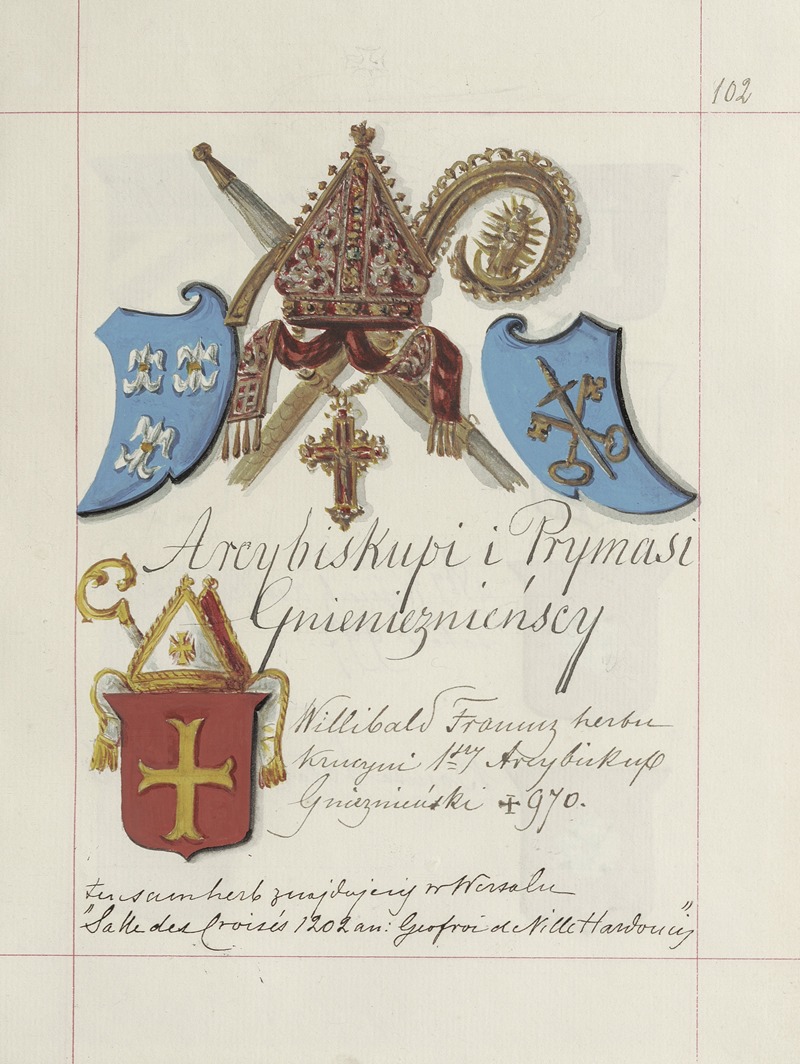 102
Arcybiskupi i Prymasi
Gnienieznieńscy
Willibald Francuz herbu
Kruczyni 1szy Arcybiskup
Gniezninieński ✠ 970.
Ten sam herb znajdujecię w Wersalu
"Salle des Croisés 1202 an: Geofroi de Ville Hardouin"